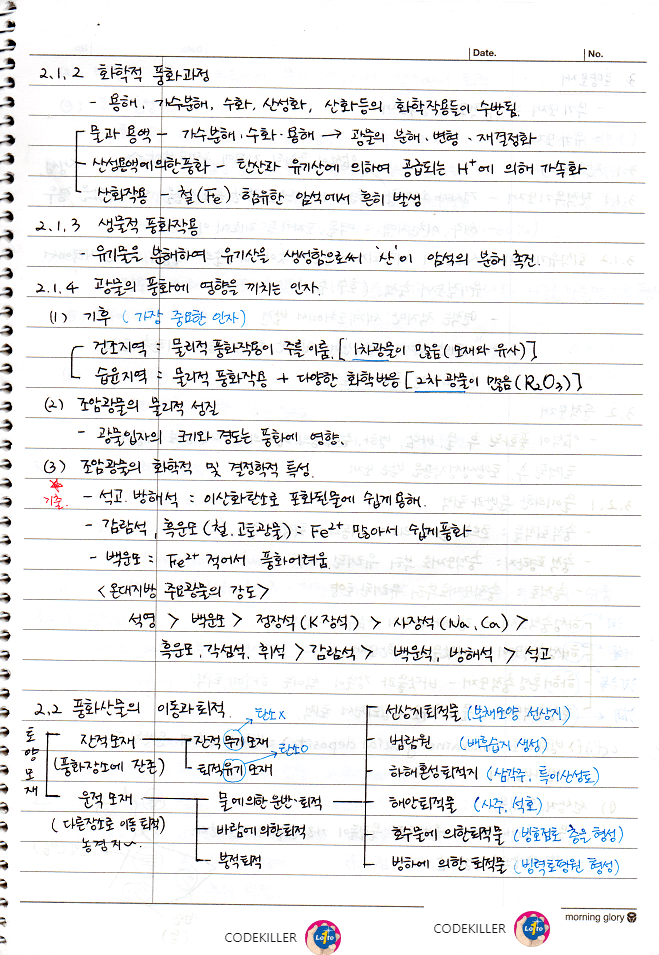 Date.
No.
2.1.2 화학적 풍화과정
- 용해, 가수분해, 수화, 산성화, 산화등의 화학작용들이 수반됨.
물과 용액 - 가수분해·수화·용해 → 광물의 분해·변형·재결정화
산성용액에의한풍화 - 탄산과 유기산에 의하여 공급되는 H⁺에 의해 가속화
산화작용 - 철(Fe) 함유한 암석에서 흔히 발생
2.1.3 생물적 풍화작용
- 유기물을 분해하여 유기산을 생성함으로써 '산'이 암석의 분해 촉진.
2.1.4 광물의 풍화에 영향을 끼치는 인자.
(1) 기후 (가장 중요한 인자)
건조지역 : 물리적 풍화작용이 주를 이룸. [1차광물이 많음(모재와 유사)]
습윤지역 : 물리적 풍화작용 + 다양한 화학반응 [2차 광물이 많음(R₂O₃)]
(2) 조암광물의 물리적 성질
- 광물입자의 크기와 경도는 풍화에 영향.
(3) 조암광물의 화학적 및 결정학적 특성.
기출.
- 석고. 방해석 : 이산화탄소로 포화된물에 쉽게용해.
- 감람석, 흑운모(철.고토광물) : Fe²⁺ 많아서 쉽게풍화
- 백운모 : Fe²⁺ 적어서 풍화어려움.
<온대지방 주요광물의 강도>
석영 > 백운모 > 정장석(K장석) > 사장석(Na, Ca) >
흑운모, 각섬석, 휘석 > 감람석 > 백운석, 방해석 > 석고
2.2 풍화산물의 이동과퇴적.
토양모재
잔적모재
(풍화장소에 잔존)
잔적유기모재
탄소X
퇴적유기모재
탄소O
운적모재
(다른장소로 이동퇴적)
농경지
물에의한 운반·퇴적
바람에의한퇴적
붕적퇴적
선상지퇴적물 (부채모양 선상지)
범람원 (배후습지 생성)
하해혼성퇴적지 (삼각주, 특이산성토)
해안퇴적물 (사주, 석호)
호수물에 의한퇴적물 (빙호점토 층을 형성)
빙하에 의한 퇴적물 (빙력토평원 형성)
morning glory
CODEKILLER
Lotto
CODEKILLER
Lotto